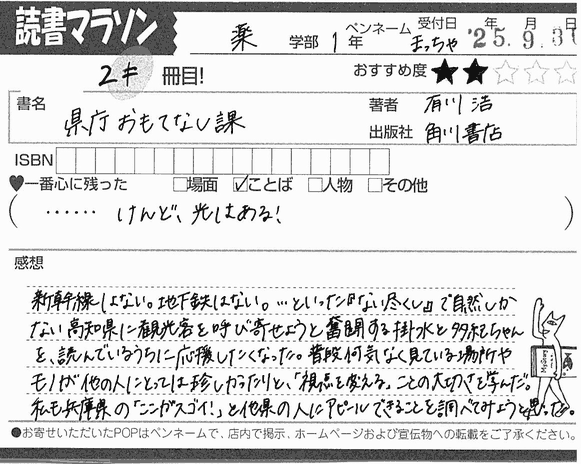 読書マラソン
薬 学部 1年 ペンネーム まっちゃ 受付日 '25.年9.月3日
2冊目! おすすめ度 ★★☆☆☆
書名 県庁おもてなし課
著者 有川 浩
出版社 角川書店
ISBN
♥一番心に残った □場面 ☑ことば □人物 □その他
( ‥‥‥ けんど、光はある! )
感想
新幹線はない。地下鉄はない。…といった『ない尽くし』で自然しか
ない高知県に観光客を呼び寄せようと奮闘する掛水と多紀ちゃん
を、読んでいるうちに応援したくなった。普段何気なく見ている場所や
モノが他の人にとっては珍しかったりと、「視点を変える」ことの大切さを学んだ。
私も兵庫県の「ここがスゴイ!」と他県の人にアピールできることを調べてみようと思った。
●お寄せいただいたPOPはペンネームで、店内で掲示、ホームページおよび宣伝物への転載をご了承ください。